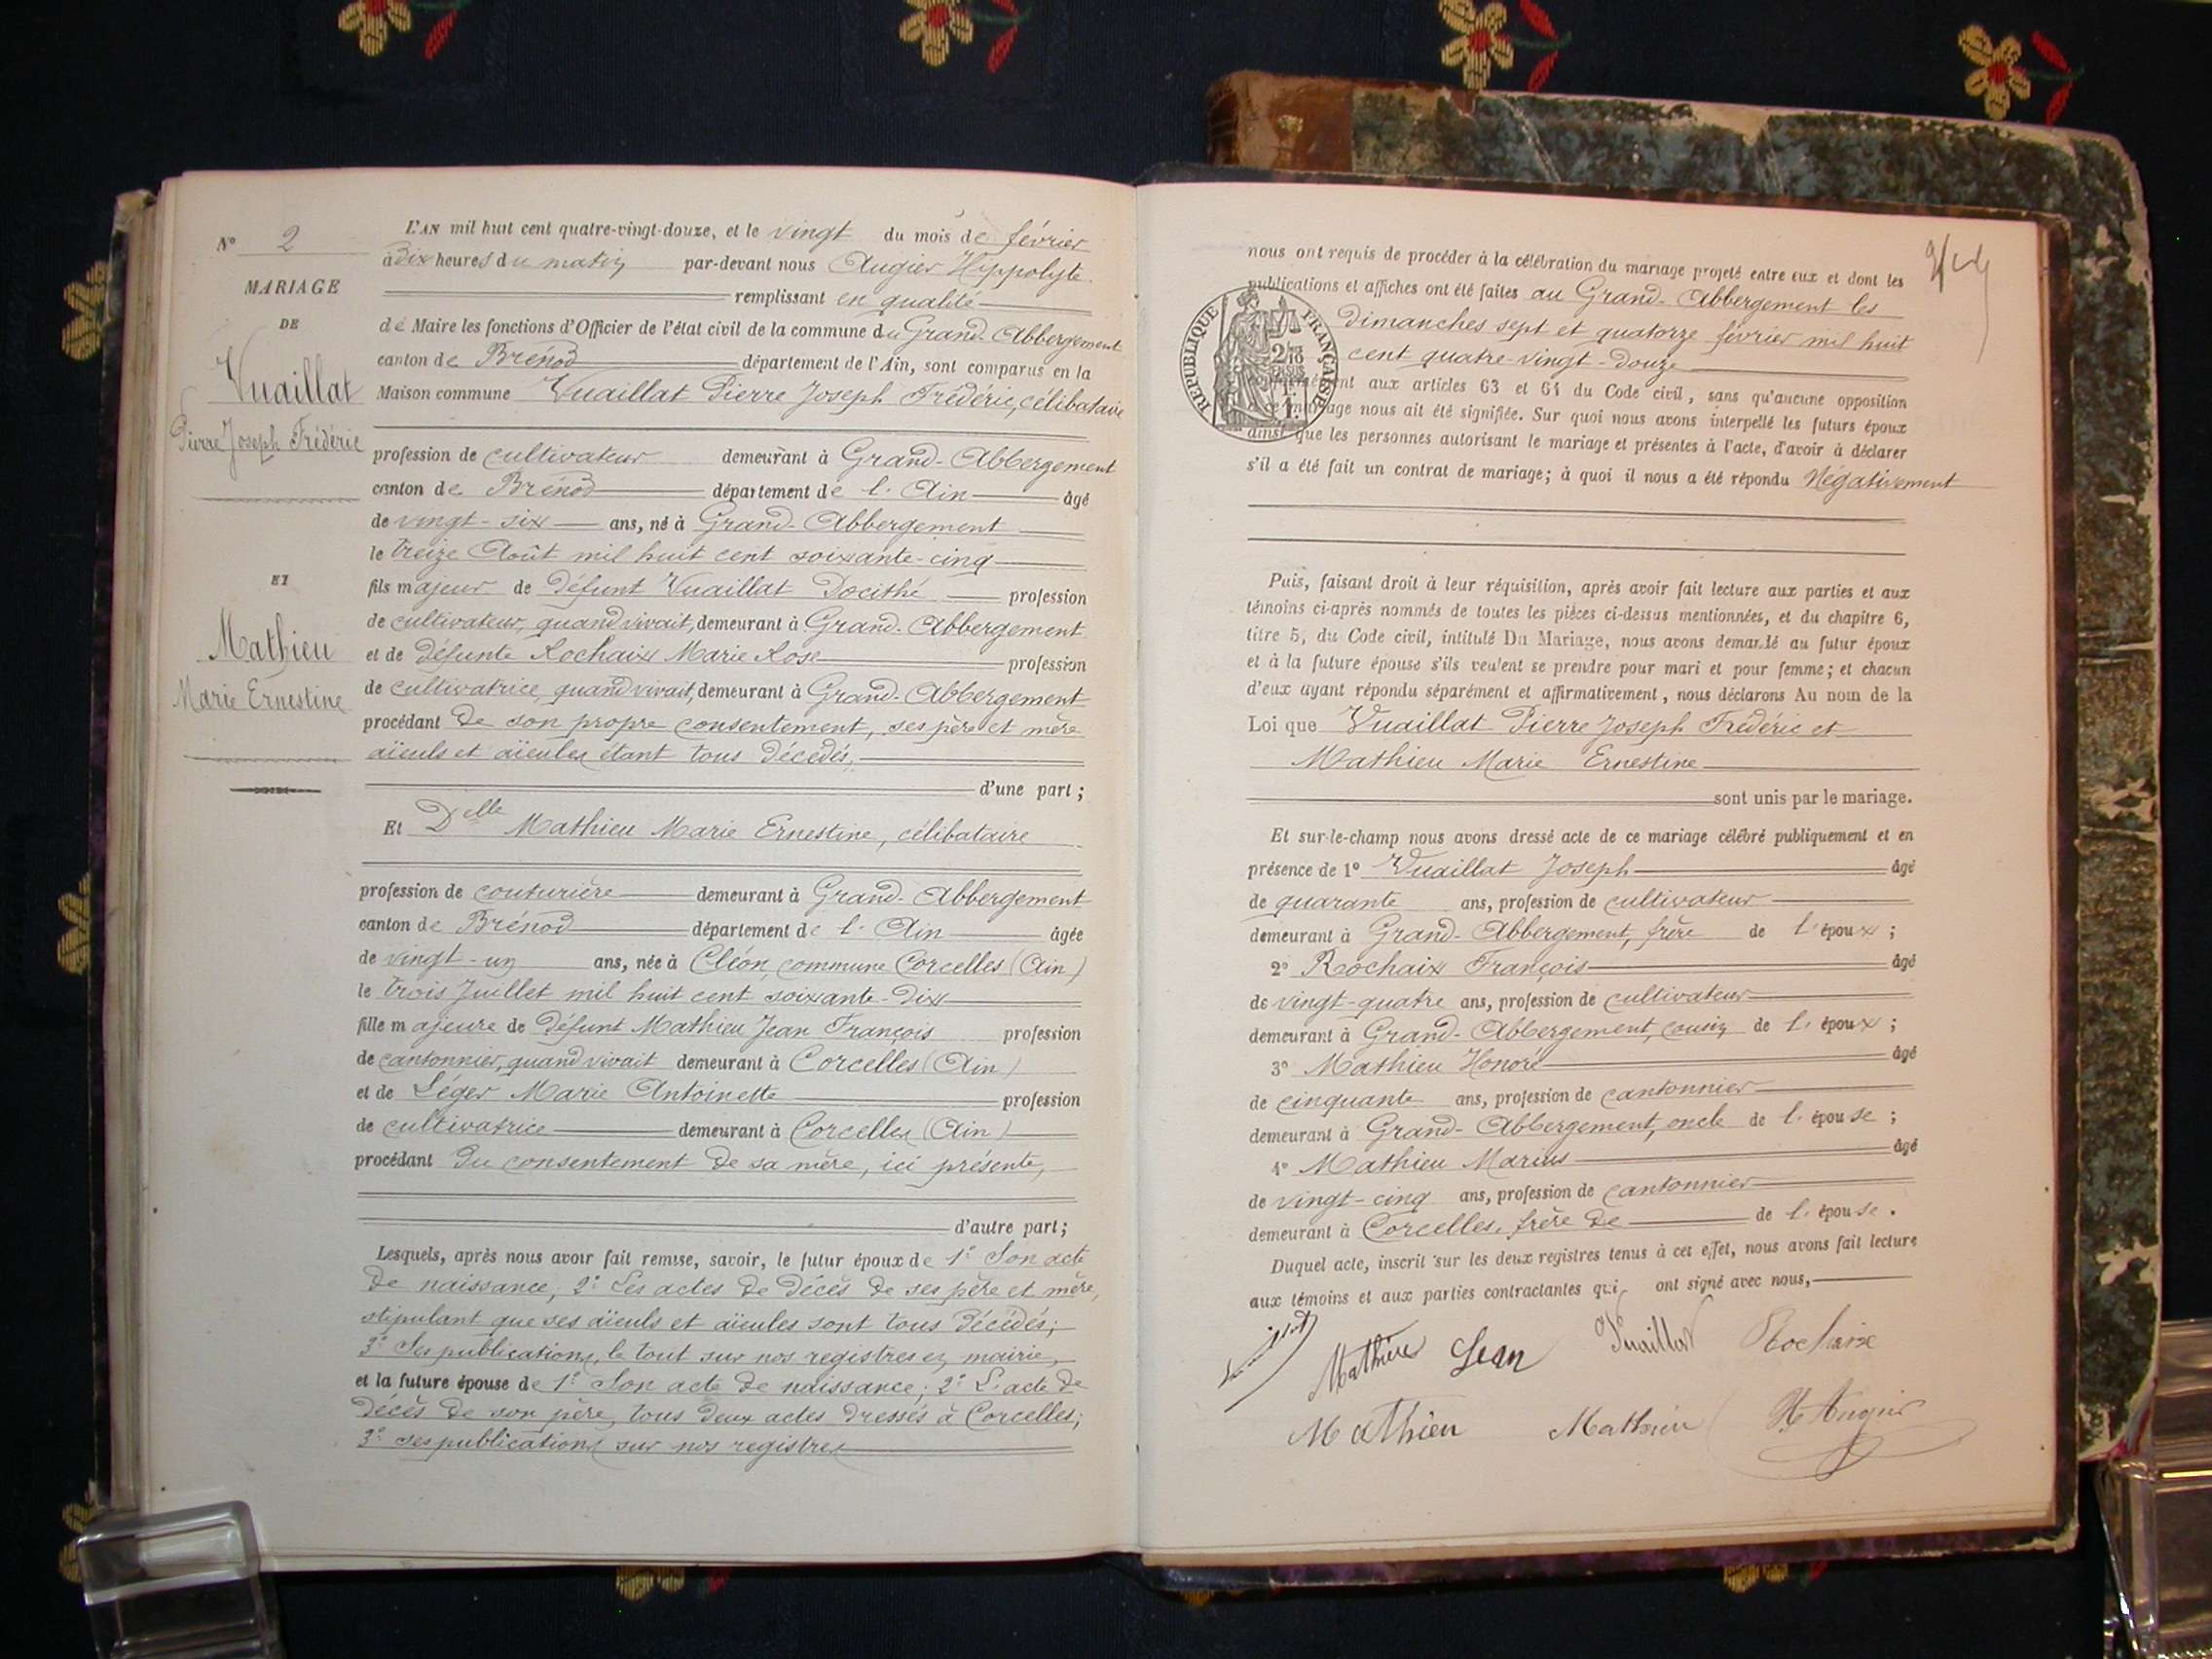 N° 2
MARIAGE
DE
Vuaillat
Pierre Joseph Frédéric
ET
Mathieu
Marie Ernestine
L'AN mil huit cent quatre-vingt-douze, et le vingt du mois de février
à dix heures du matin par-devant nous Augier Hippolyte
remplissant en qualité
de Maire les fonctions d'Officier de l'état civil de la commune du Grand-Abbergement
canton de Brénod département de l'Ain, sont comparus en la
Maison commune Vuaillat Pierre Joseph Frédéric, célibataire
profession de cultivateur demeurant à Grand-Abbergement
canton de Brénod département de l'Ain âgé
de vingt-six ans, né à Grand-Abbergement
le treize Août mil huit cent soixante-cinq
fils majeur de défunt Vuaillat Docithé profession
de cultivateur, quand vivait, demeurant à Grand-Abbergement
et de défunte Rochaix Marie Rose profession
de cultivatrice, quand vivait, demeurant à Grand-Abbergement
procédant de son propre consentement, ses père et mère
aïeuls et aïeules étant tous décédés,
d'une part ;
Et Delle Mathieu Marie Ernestine, célibataire
profession de couturière demeurant à Grand-Abbergement
canton de Brénod département de l'Ain âgée
de vingt-un ans, née à Cléon, commune Corcelles (Ain)
le trois Juillet mil huit cent soixante-dix
fille majeure de défunt Mathieu Jean François profession
de cantonnier, quand vivait demeurant à Corcelles (Ain)
et de Léger Marie Antoinette profession
de cultivatrice demeurant à Corcelles (Ain)
procédant du consentement de sa mère, ici présente,
d'autre part ;
Lesquels, après nous avoir fait remise, savoir, le futur époux de 1° Son acte
de naissance, 2° Les actes de décès de ses père et mère,
stipulant que ses aïeuls et aïeules sont tous décédés ;
3° Ses publications, le tout sur nos registres en mairie,
et la future épouse de 1° Son acte de naissance ; 2° L'acte de
décès de son père, tous deux actes dressés à Corcelles ;
3° ses publications sur nos registres
nous ont requis de procéder à la célébration du mariage projeté entre eux et dont les
publications et affiches ont été faites au Grand-Abbergement les
dimanches sept et quatorze février mil huit
cent quatre-vingt-douze
RÉPUBLIQUE FRANÇAISE
conformément aux articles 63 et 64 du Code civil, sans qu'aucune opposition
à ce mariage nous ait été signifiée. Sur quoi nous avons interpellé les futurs époux
ainsi que les personnes autorisant le mariage et présentes à l'acte, d'avoir à déclarer
s'il a été fait un contrat de mariage ; à quoi il nous a été répondu Négativement
Puis, faisant droit à leur réquisition, après avoir fait lecture aux parties et aux
témoins ci-après nommés de toutes les pièces ci-dessus mentionnées, et du chapitre 6,
titre 5, du Code civil, intitulé Du Mariage, nous avons demandé au futur époux
et à la future épouse s'ils veulent se prendre pour mari et pour femme ; et chacun
d'eux ayant répondu séparément et affirmativement, nous déclarons Au nom de la
Loi que Vuaillat Pierre Joseph Frédéric et
Mathieu Marie Ernestine
sont unis par le mariage.
Et sur-le-champ nous avons dressé acte de ce mariage célébré publiquement et en
présence de 1° Vuaillat Joseph âgé
de quarante ans, profession de cultivateur
demeurant à Grand-Abbergement, frère de l'époux ;
2° Rochaix François âgé
de vingt-quatre ans, profession de cultivateur
demeurant à Grand-Abbergement, cousin de l'époux ;
3° Mathieu Honoré âgé
de cinquante ans, profession de cantonnier
demeurant à Grand-Abbergement, oncle de l'épouse ;
4° Mathieu Marius âgé
de vingt-cinq ans, profession de cantonnier
demeurant à Corcelles, frère de de l'épouse.
Duquel acte, inscrit sur les deux registres tenus à cet effet, nous avons fait lecture
aux témoins et aux parties contractantes qui ont signé avec nous,
Mathieu Jean Vuaillat Rochaix
Mathieu Mathieu H. Augier